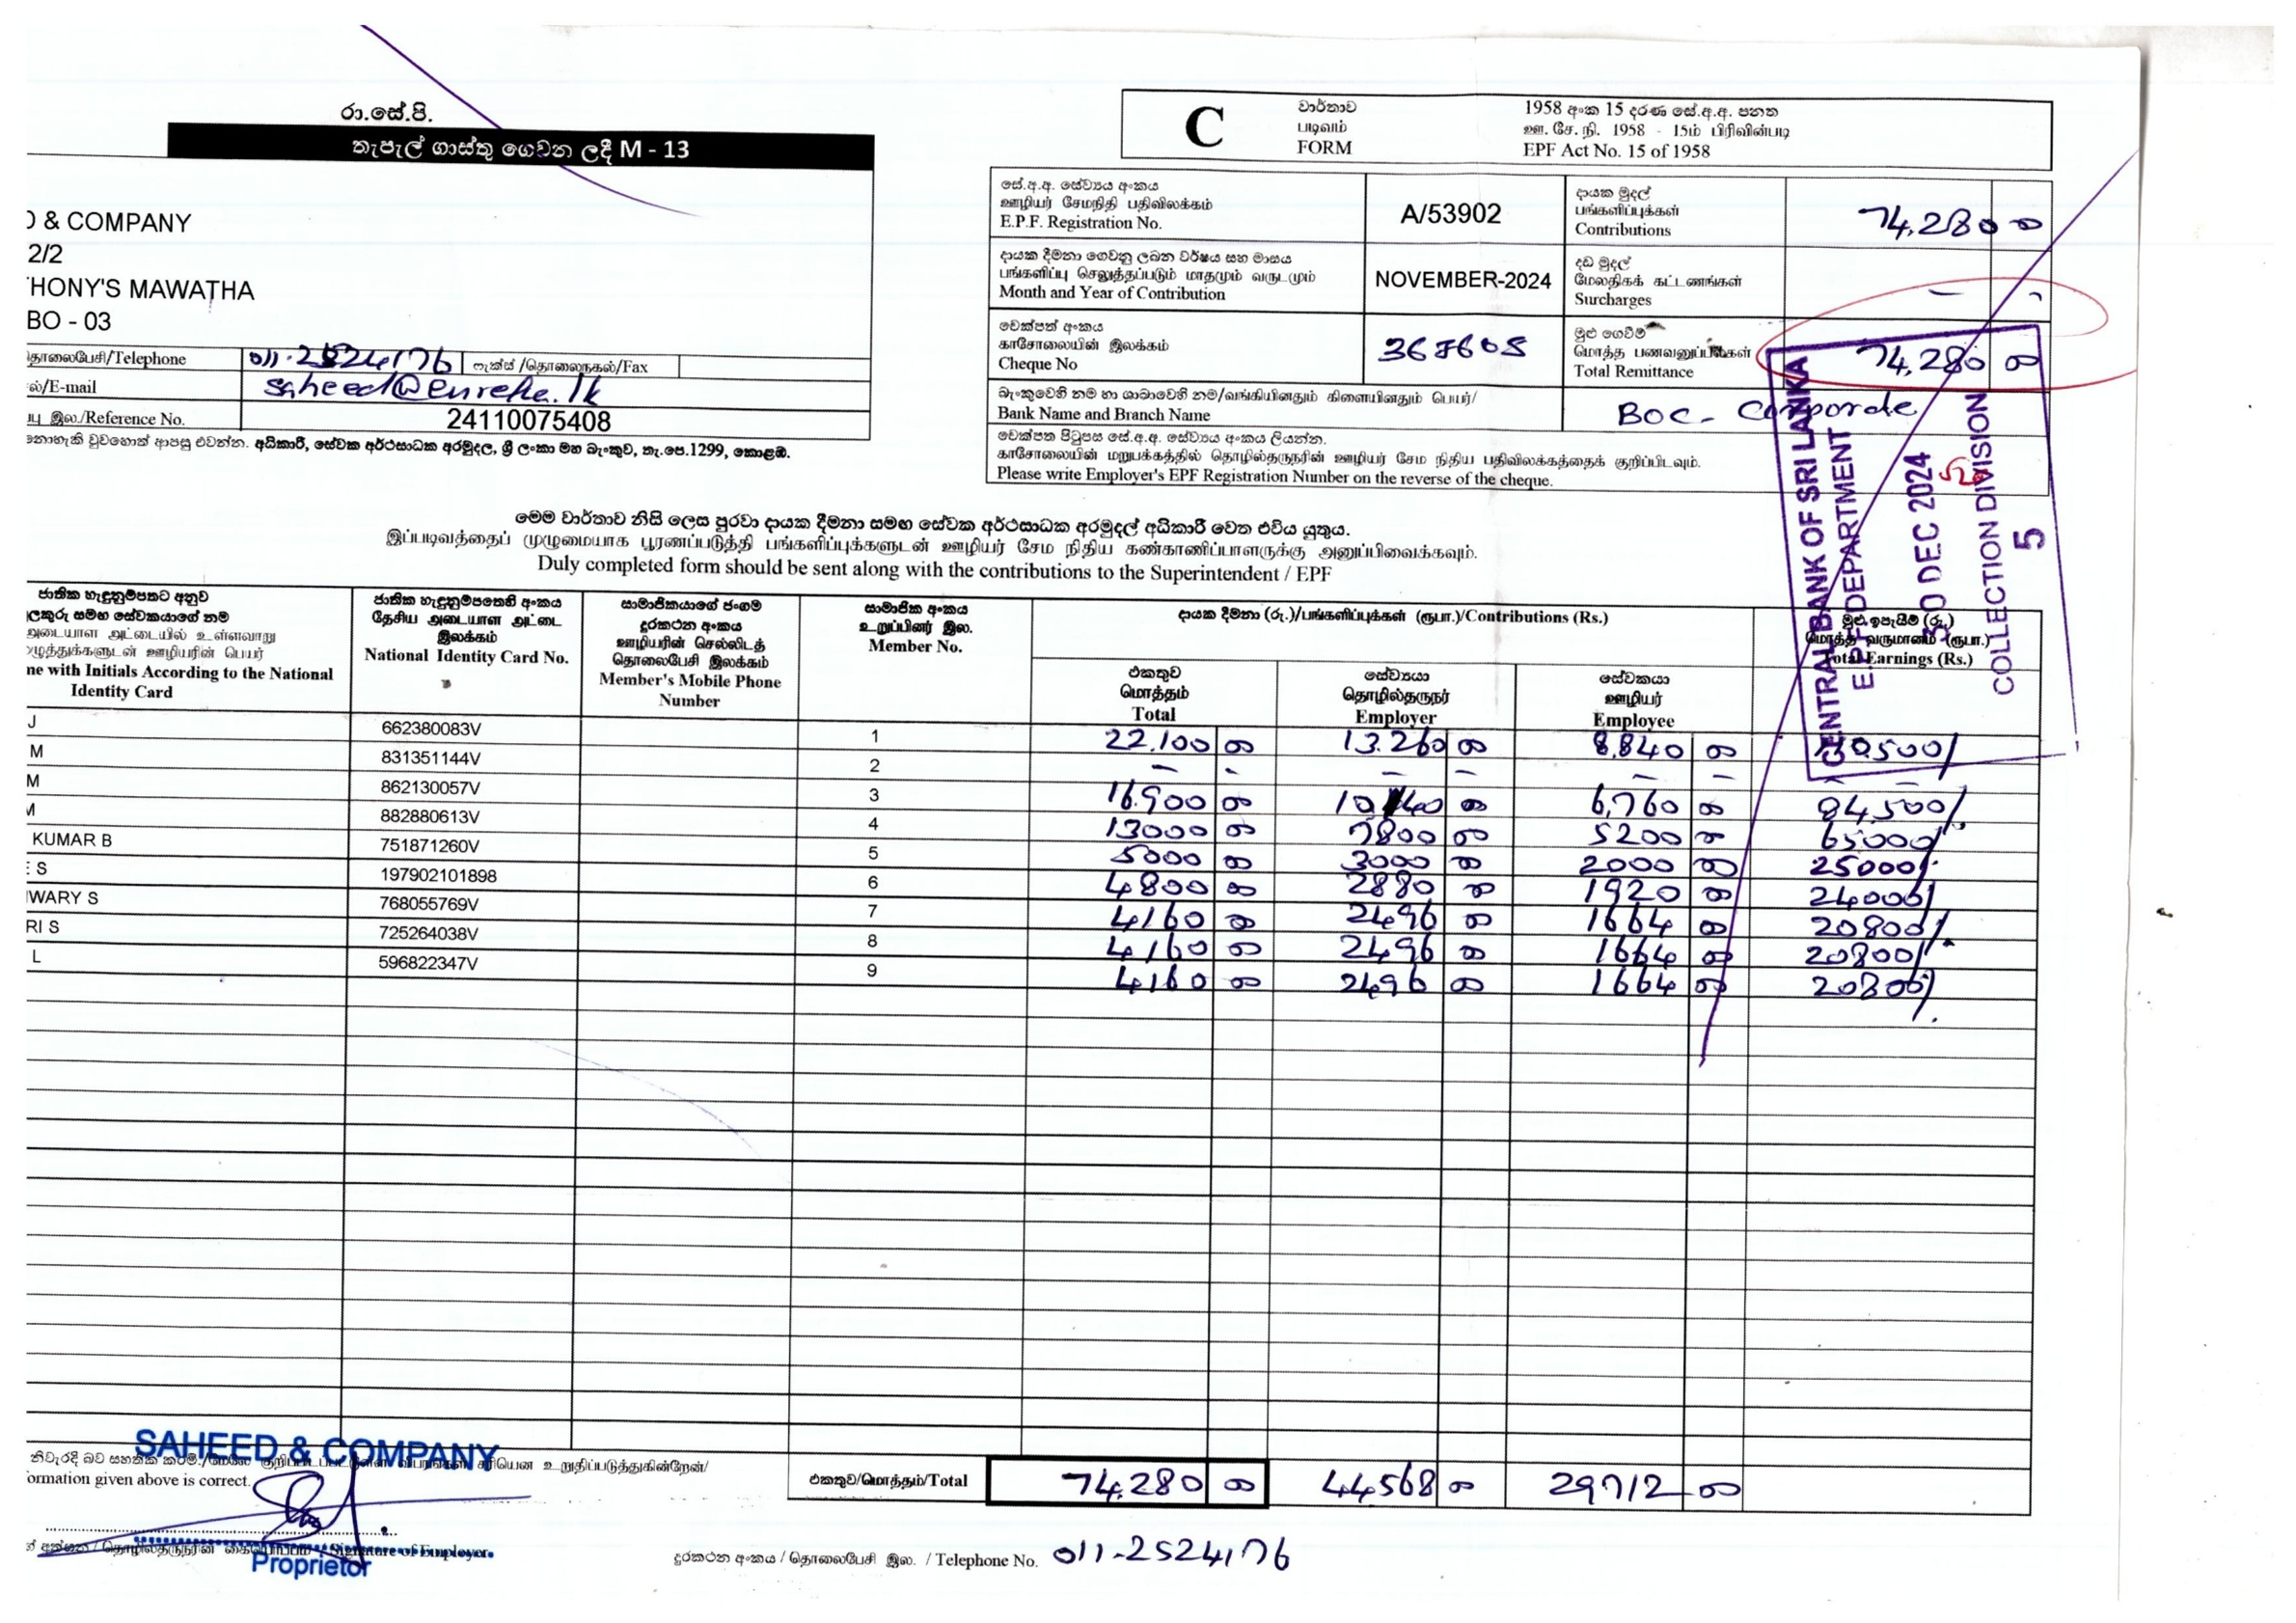 රා.සේ.පි.
තැපැල් ගාස්තු ගෙවන ලදී M - 13
& COMPANY
2/2
HONY'S MAWATHA
BO - 03
தொலைபேசி/Telephone 011-2524176 ෆැක්ස් /தொலைநகல்/Fax
ல்/E-mail saheed@eureka.lk
பு இல./Reference No. 24110075408
නොහැකි වුවහොත් ආපසු එවන්න. අධිකාරී, සේවක අර්ථසාධක අරමුදල, ශ්‍රී ලංකා මහ බැංකුව, තැ.පෙ.1299, කොළඹ.
C
වාර්තාව
படிவம்
FORM
1958 අංක 15 දරණ සේ.අ.අ. පනත
ஊ. சே. நி. 1958 - 15ம் பிரிவின்படி
EPF Act No. 15 of 1958
සේ.අ.අ. සේව්‍යය අංකය
ஊழியர் சேமநிதி பதிவிலக்கம்
E.P.F. Registration No.
A/53902
දායක මුදල්
பங்களிப்புக்கள்
Contributions
74,280 00
දායක දීමනා ගෙවනු ලබන වර්ෂය සහ මාසය
பங்களிப்பு செலுத்தப்படும் மாதமும் வருடமும்
Month and Year of Contribution
NOVEMBER-2024
දඩ මුදල්
மேலதிகக் கட்டணங்கள்
Surcharges
– -
චෙක්පත් අංකය
காசோலையின் இலக்கம்
Cheque No
367605
මුළු ගෙවීම්
மொத்த பணவனுப்பல்கள்
Total Remittance
74,280 00
බැංකුවෙහි නම හා ශාඛාවෙහි නම/வங்கியினதும் கிளையினதும் பெயர்/
Bank Name and Branch Name
BOC - Corporate
චෙක්පත පිටුපස සේ.අ.අ. සේව්‍යය අංකය ලියන්න.
காசோலையின் மறுபக்கத்தில் தொழில்தருநரின் ஊழியர் சேம நிதிய பதிவிலக்கத்தைக் குறிப்பிடவும்.
Please write Employer's EPF Registration Number on the reverse of the cheque.
CENTRAL BANK OF SRI LANKA
E.P.F DEPARTMENT
DEC 2024
COLLECTION DIVISION
5
මෙම වාර්තාව නිසි ලෙස පුරවා දායක දීමනා සමඟ සේවක අර්ථසාධක අරමුදල් අධිකාරී වෙත එවිය යුතුය.
இப்படிவத்தைப் முழுமையாக பூரணப்படுத்தி பங்களிப்புக்களுடன் ஊழியர் சேம நிதிய கண்காணிப்பாளருக்கு அனுப்பிவைக்கவும்.
Duly completed form should be sent along with the contributions to the Superintendent / EPF
ජාතික හැඳුනුම්පතට අනුව
ලකුරු සමඟ සේවකයාගේ නම
அடையாள அட்டையில் உள்ளவாறு
ழுத்துக்களுடன் ஊழியரின் பெயர்
ne with Initials According to the National
Identity Card
ජාතික හැඳුනුම්පතෙහි අංකය
தேசிய அடையாள அட்டை
இலக்கம்
National Identity Card No.
සාමාජිකයාගේ ජංගම
දුරකථන අංකය
ஊழியரின் செல்லிடத்
தொலைபேசி இலக்கம்
Member's Mobile Phone
Number
සාමාජික අංකය
உறுப்பினர் இல.
Member No.
දායක දීමනා (රු.)/பங்களிப்புக்கள் (ரூபா.)/Contributions (Rs.)
එකතුව
மொத்தம்
Total
සේව්‍යයා
தொழில்தருநர்
Employer
සේවකයා
ஊழியர்
Employee
මුළු ඉපැයීම් (රු.)
மொத்த வருமானம் (ரூபா.)
Total Earnings (Rs.)
J 662380083V 1 22,100 00 13,260 00 8,840 00 110,500/
M 831351144V 2 – - – – – –
M 862130057V 3 16,900 00 10140 00 6,760 00 84,500/.
M 882880613V 4 13000 00 7800 00 5200 00 65000/.
KUMAR B 751871260V 5 5000 00 3000 00 2000 00 25000/.
E S 197902101898 6 4800 00 2880 00 1920 00 24000/
WARY S 768055769V 7 4160 00 2496 00 1664 00 20800/.
RI S 725264038V 8 4160 00 2496 00 1664 00 20800/.
L 596822347V 9 4160 00 2496 00 1664 00 20800/.
එකතුව/மொத்தம்/Total 74,280 00 44568 00 29712 00
SAHEED & COMPANY
ormation given above is correct.
Signature of Employer
Proprietor
දුරකථන අංකය / தொலைபேசி இல. / Telephone No. 011-2524176